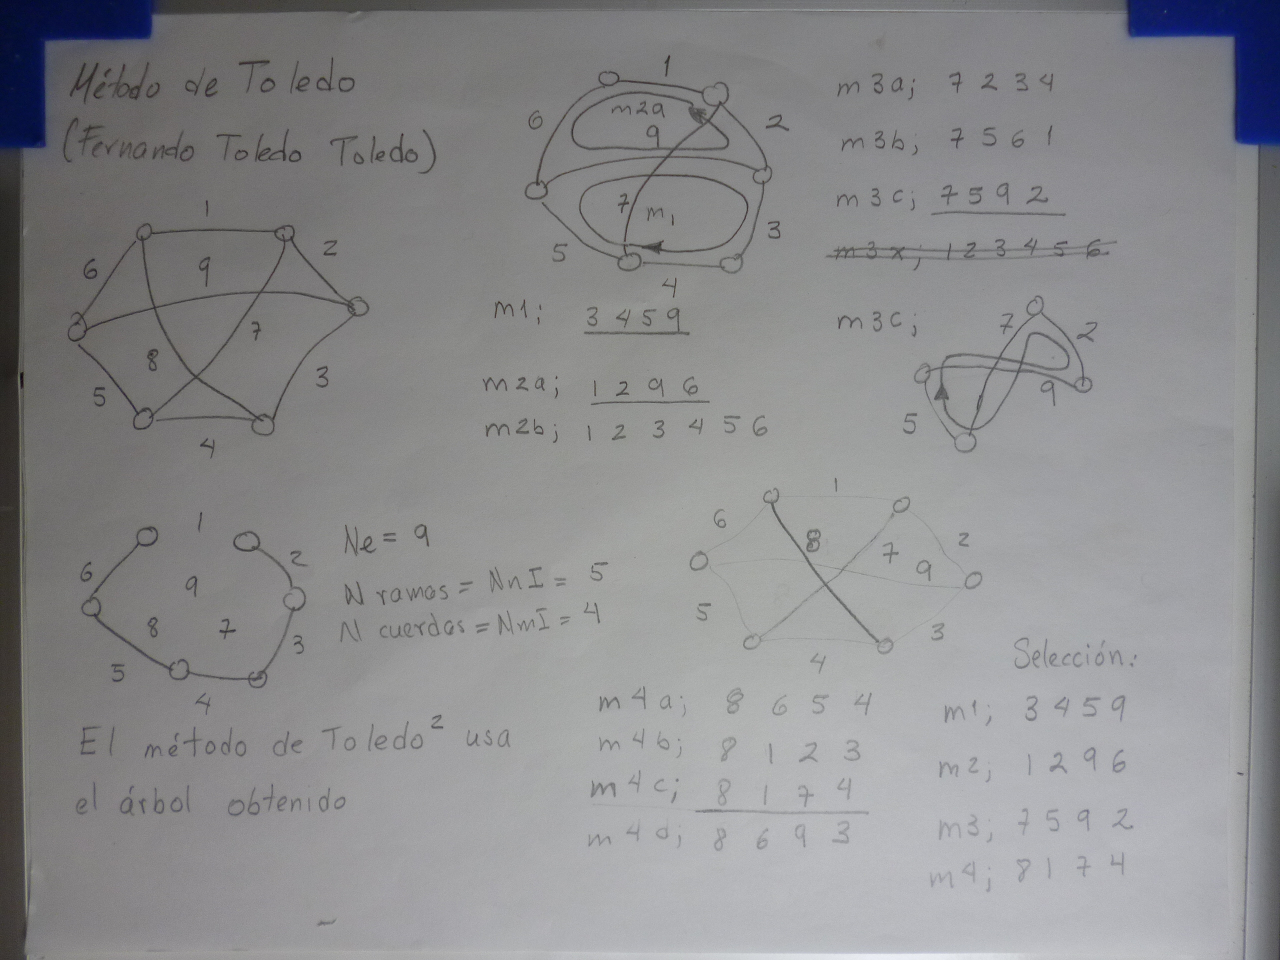 Método de Toledo
(Fernando Toledo Toledo)
1
6
9
2
7
8
5
3
4
1
6
m2a
9
2
7
m1
5
3
4
m1; 3 4 5 9
m2a; 1 2 9 6
m2b; 1 2 3 4 5 6
m3a; 7 2 3 4
m3b; 7 5 6 1
m3c; 7 5 9 2
m3x; 1 2 3 4 5 6
m3c;
7
2
9
5
1
6
9
2
8
7
3
5
4
Ne = 9
N ramas = NnI = 5
N cuerdas = NmI = 4
El método de Toledo² usa
el árbol obtenido
1
6
8
7
9
2
5
3
4
m4a; 8 6 5 4
m4b; 8 1 2 3
m4c; 8 1 7 4
m4d; 8 6 9 3
Selección:
m1; 3 4 5 9
m2; 1 2 9 6
m3; 7 5 9 2
m4; 8 1 7 4